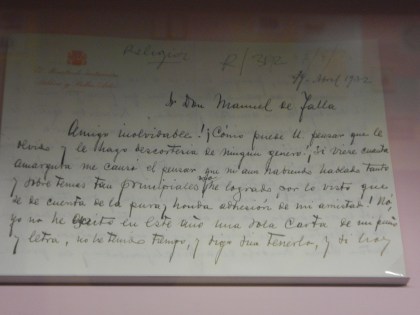 Religión R/392
Abril 1932
Sr Don Manuel de Falla
Amigo inolvidable! ¡Cómo puede U. pensar que le
olvido y le hago descortesía de ningún género! ¡Si viere cuanta
amargura me causó el pensar que ni aun habiendo hablado tanto
y sobre temas tan principales he logrado por lo visto que
se de cuenta de la pura y honda adhesión de mi amistad! No,
yo no he escrito en este año una sola carta de mi puño
y letra, no he tenido tiempo, y sigo sin tenerlo, y si hay